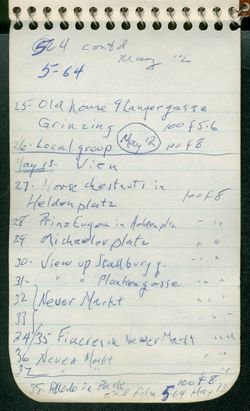 524 contd
May 12
5-64
25- Old house 9 Langergasse
Grinzing 100 f 5.6
26- Local group May 12 100 f 8
May 13- Vien
27- Horse chestnuts in
Heldenplatz 100 f 8
28 Prinz Eugen in Heldenplatz " "
29 Michaelerplatz " "
30- View up Stallburgg. " "
31- " " Plankengasse " "
32 Neuer Markt " "
33
34/35 Fiacres in Neuer Markt " "
36 Neuer Markt " "
37 " " "
38- in Park 100 f 8
End film 5-64 May 13